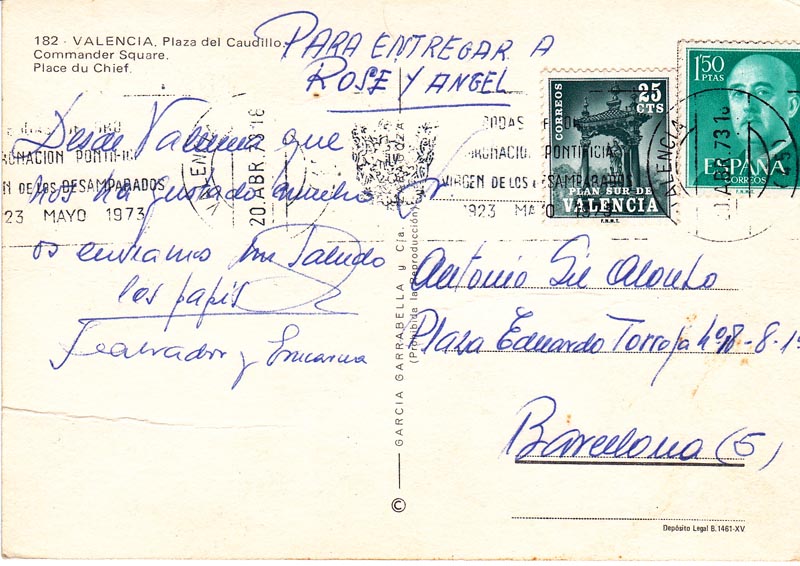 182 - VALENCIA. Plaza del Caudillo.
Commander Square.
Place du Chief.
PARA ENTREGAR A
ROSE Y ANGEL
Desde Valencia que
nos ha gustado mucho
os enviamos un saludo
los papis
Salvador y Encarna
BODAS DE ORO
CORONACION PONTIFICIA
VIRGEN DE LOS DESAMPARADOS
1923 MAYO 1973
VALENCIA
20 ABR. 73 18
BODAS
CORONACION PONTIFICIA
VIRGEN DE LOS DESAMPARADOS
1923 MAYO 1973
VALENCIA
20 ABR. 73 18
CORREOS
25
CTS
PLAN SUR DE
VALENCIA
F.N.M.T.
1'50
PTAS
ESPAÑA
CORREOS
GARCIA GARRABELLA y Cía. ZARAGOZA
(Prohibida la Reproducción)
©
Antonio Gil Alonso
Plaza Eduardo Torroja nº 8-8-1º
Barcelona (5)
Depósito Legal B.1461-XV